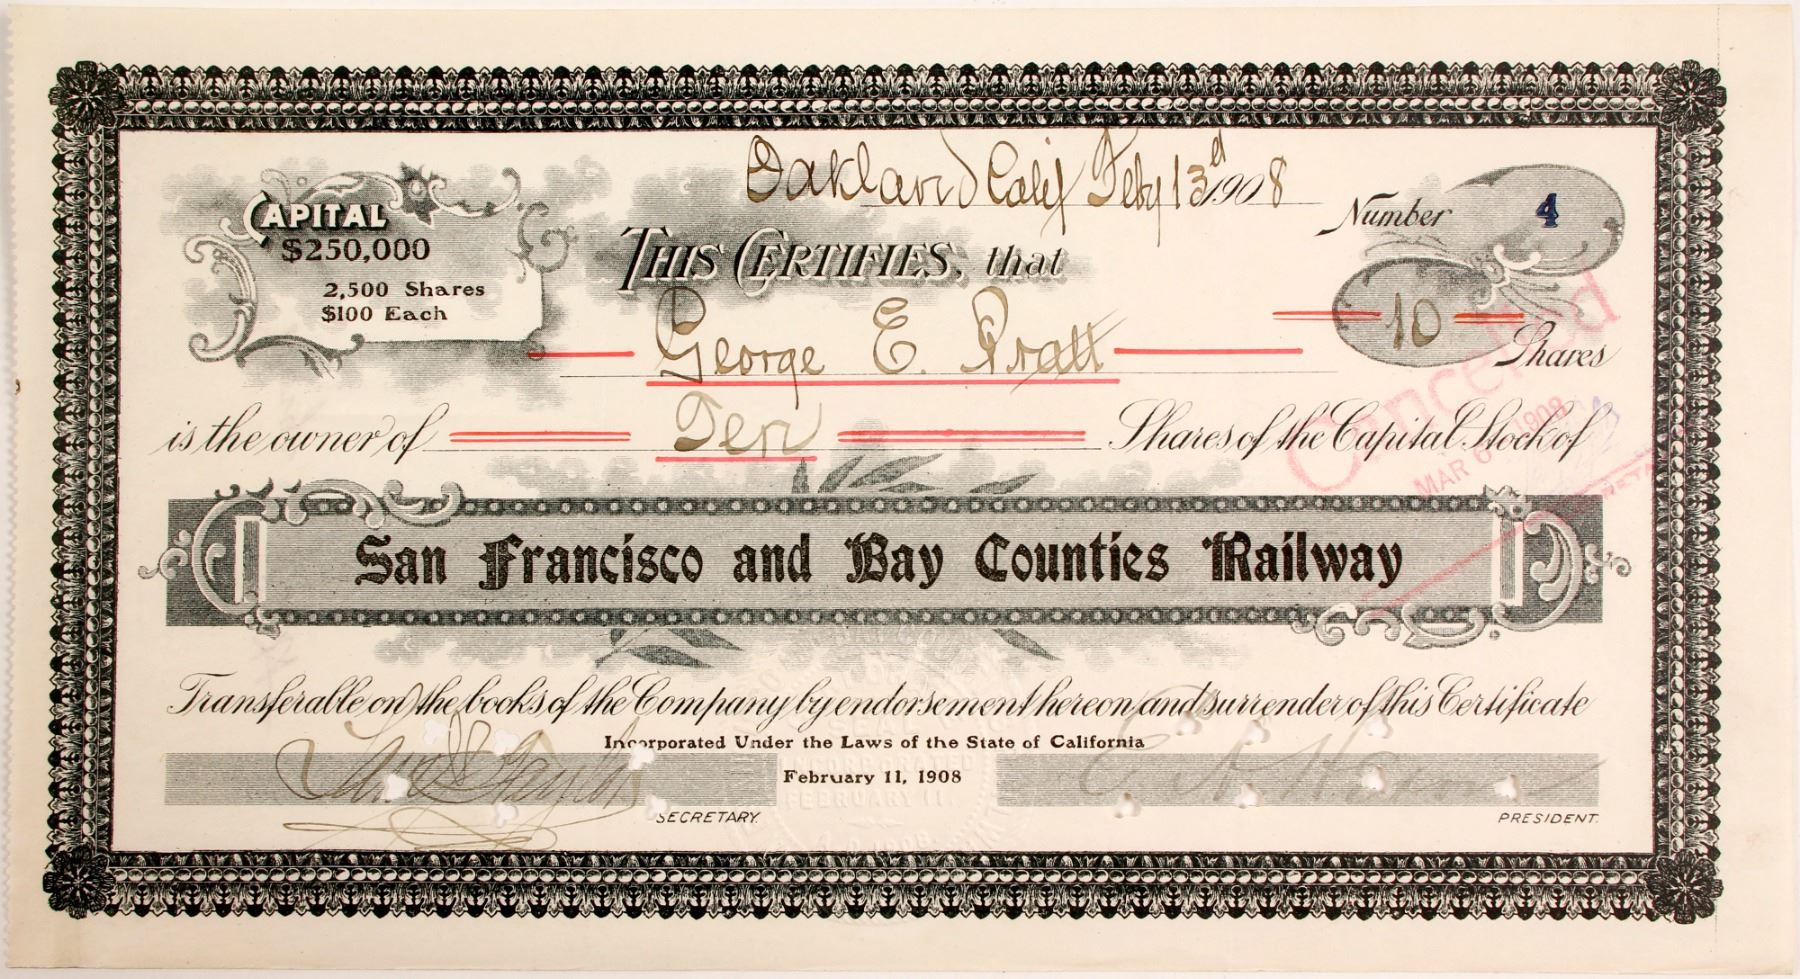 Oakland Calif Feby 13d 1908
CAPITAL
$250,000
2,500 Shares
$100 Each
Number 4
THIS CERTIFIES, that
George E. Pratt
10
Shares
Cancelled
MAR 6 1908
is the owner of Ten Shares of the Capital Stock of
San Francisco and Bay Counties Railway
Transferable on the books of the Company by endorsement hereon and surrender of this Certificate
Incorporated Under the Laws of the State of California
February 11, 1908
SEAL
INCORPORATED
FEBRUARY 11.
1908
SECRETARY.
PRESIDENT.